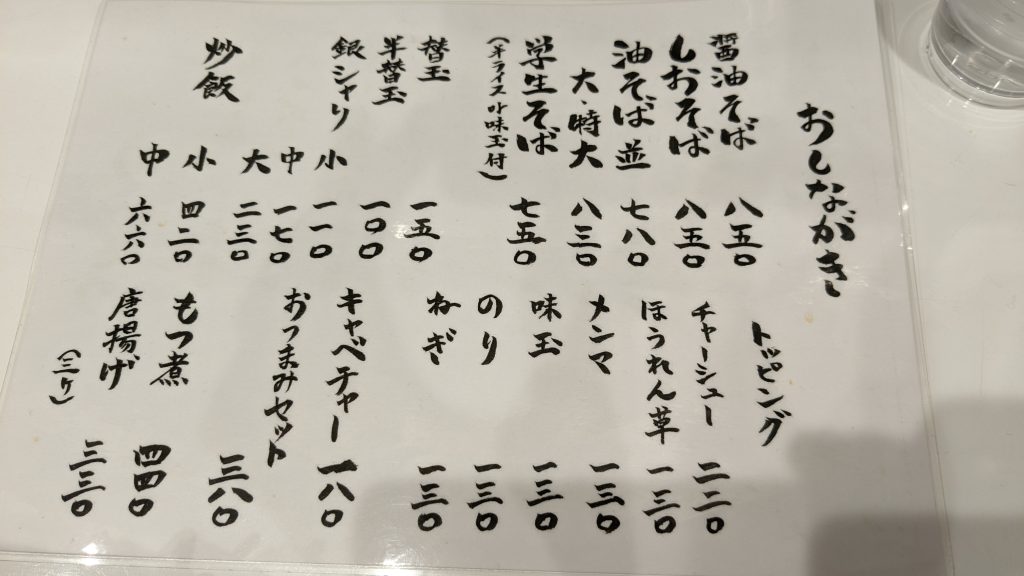 おしながき
醤油そば 八五〇
しおそば 八五〇
油そば 並 七八〇
大・特大 八三〇
学生そば 七五〇
(半ライスか味玉付)
替玉 一五〇
半替玉 一〇〇
銀シャリ 小 一一〇
中 一七〇
大 二三〇
炒飯 小 四二〇
中 六六〇
トッピング
チャーシュー 二二〇
ほうれん草 一三〇
メンマ 一三〇
味玉 一三〇
のり 一三〇
ねぎ 一三〇
キャベチャー 一八〇
おつまみセット 三八〇
もつ煮 四四〇
唐揚げ 三三〇
(三ケ)